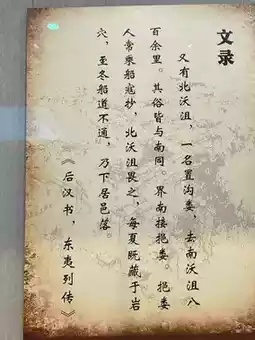 文录
又有北沃沮，一名置沟娄，去南沃沮八
百余里。其俗皆与南同。界南接挹娄。挹娄
人常乘船寇抄，北沃沮畏之，每夏辄藏于岩
穴，至冬船道不通，乃下居邑落。
《后汉书，东夷列传》